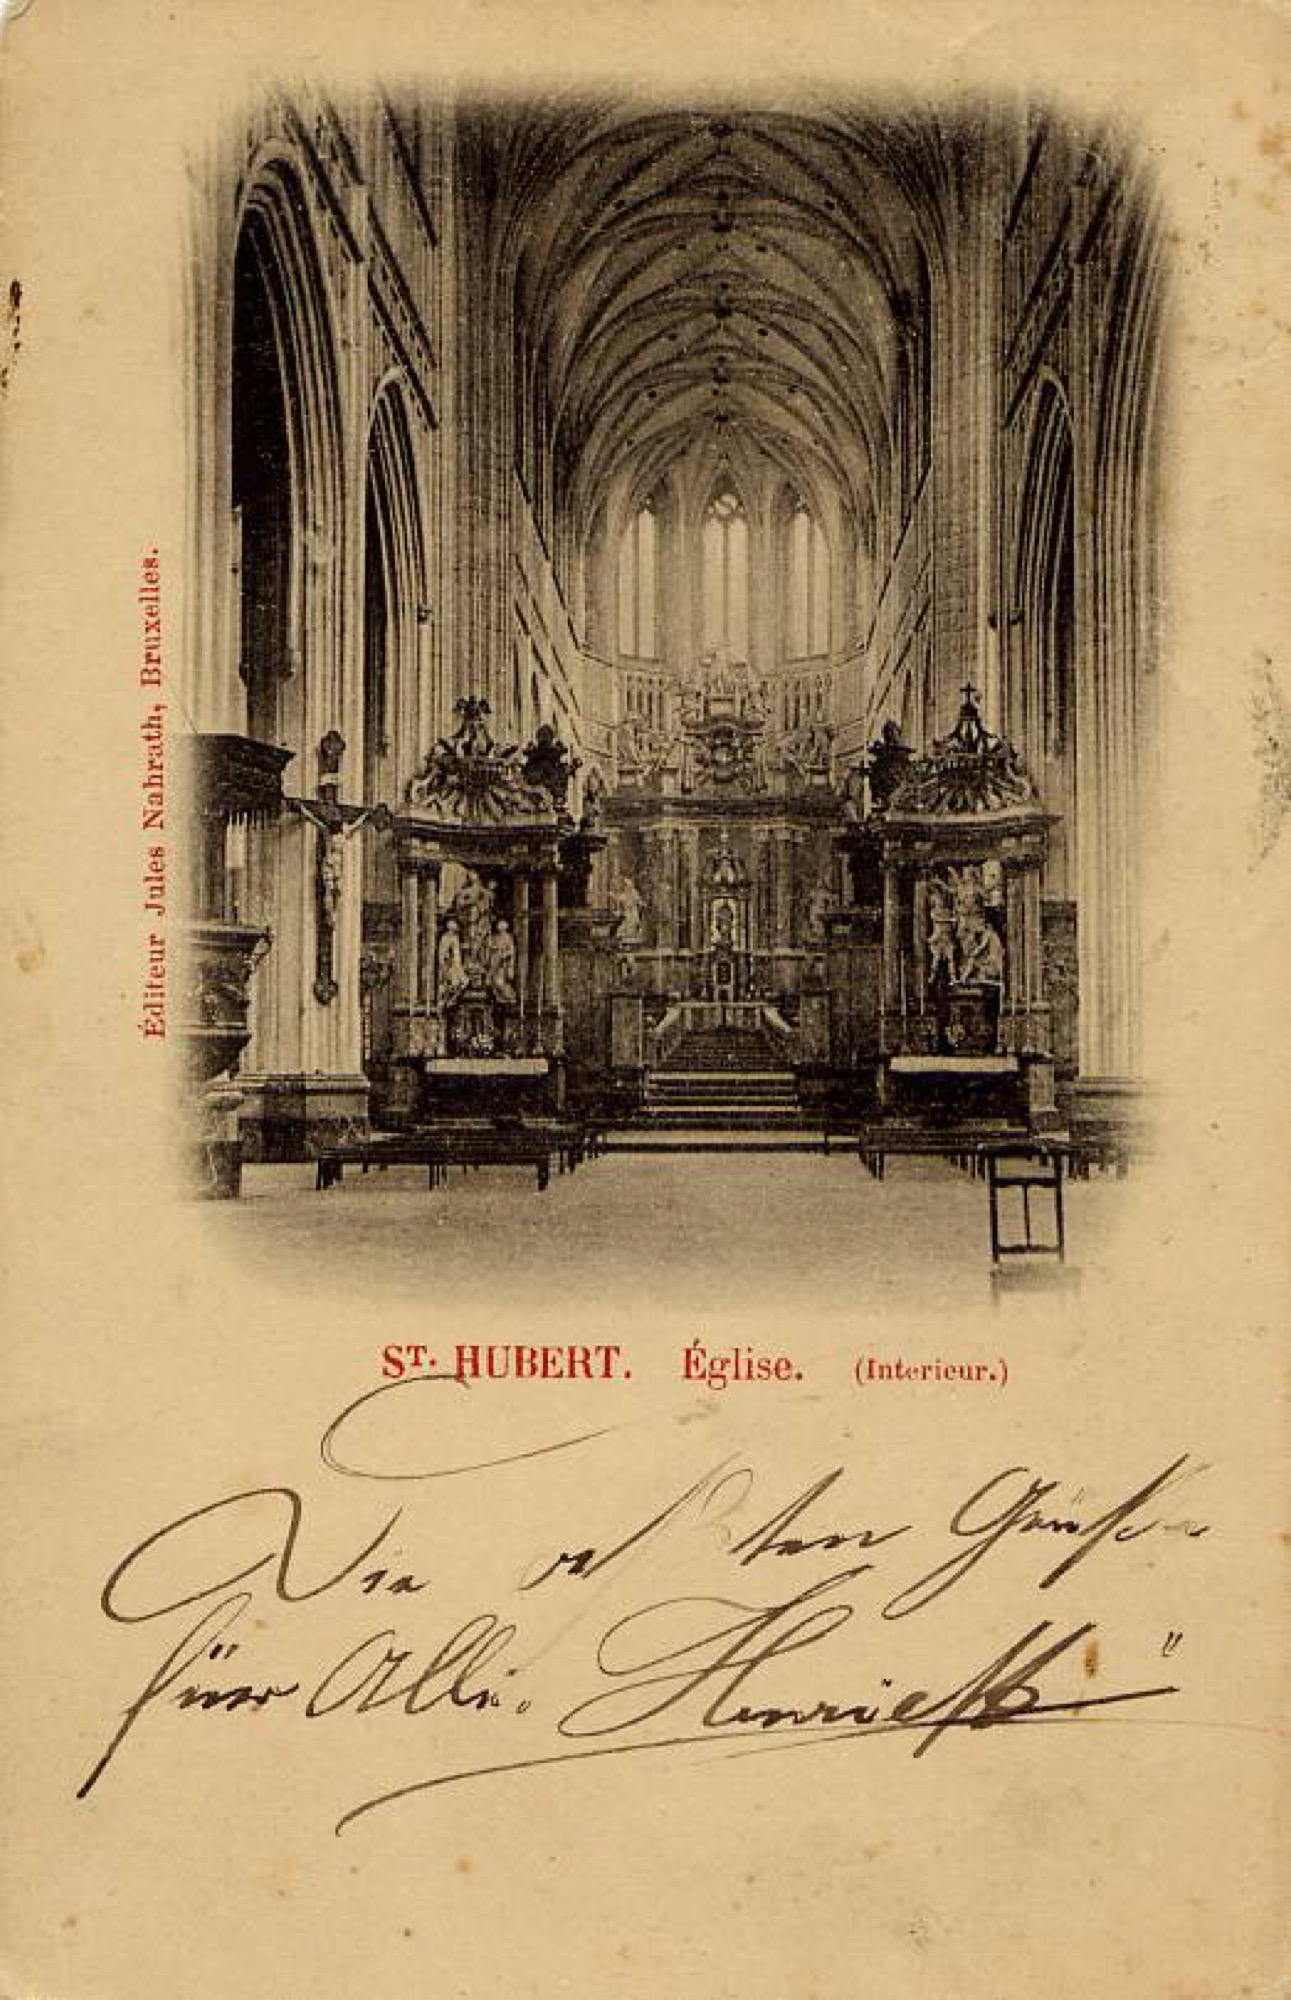 Éditeur Jules Nahrath, Bruxelles.
ST. HUBERT. Église. (Interieur.)
Die Grüße
für Alle. Henriette